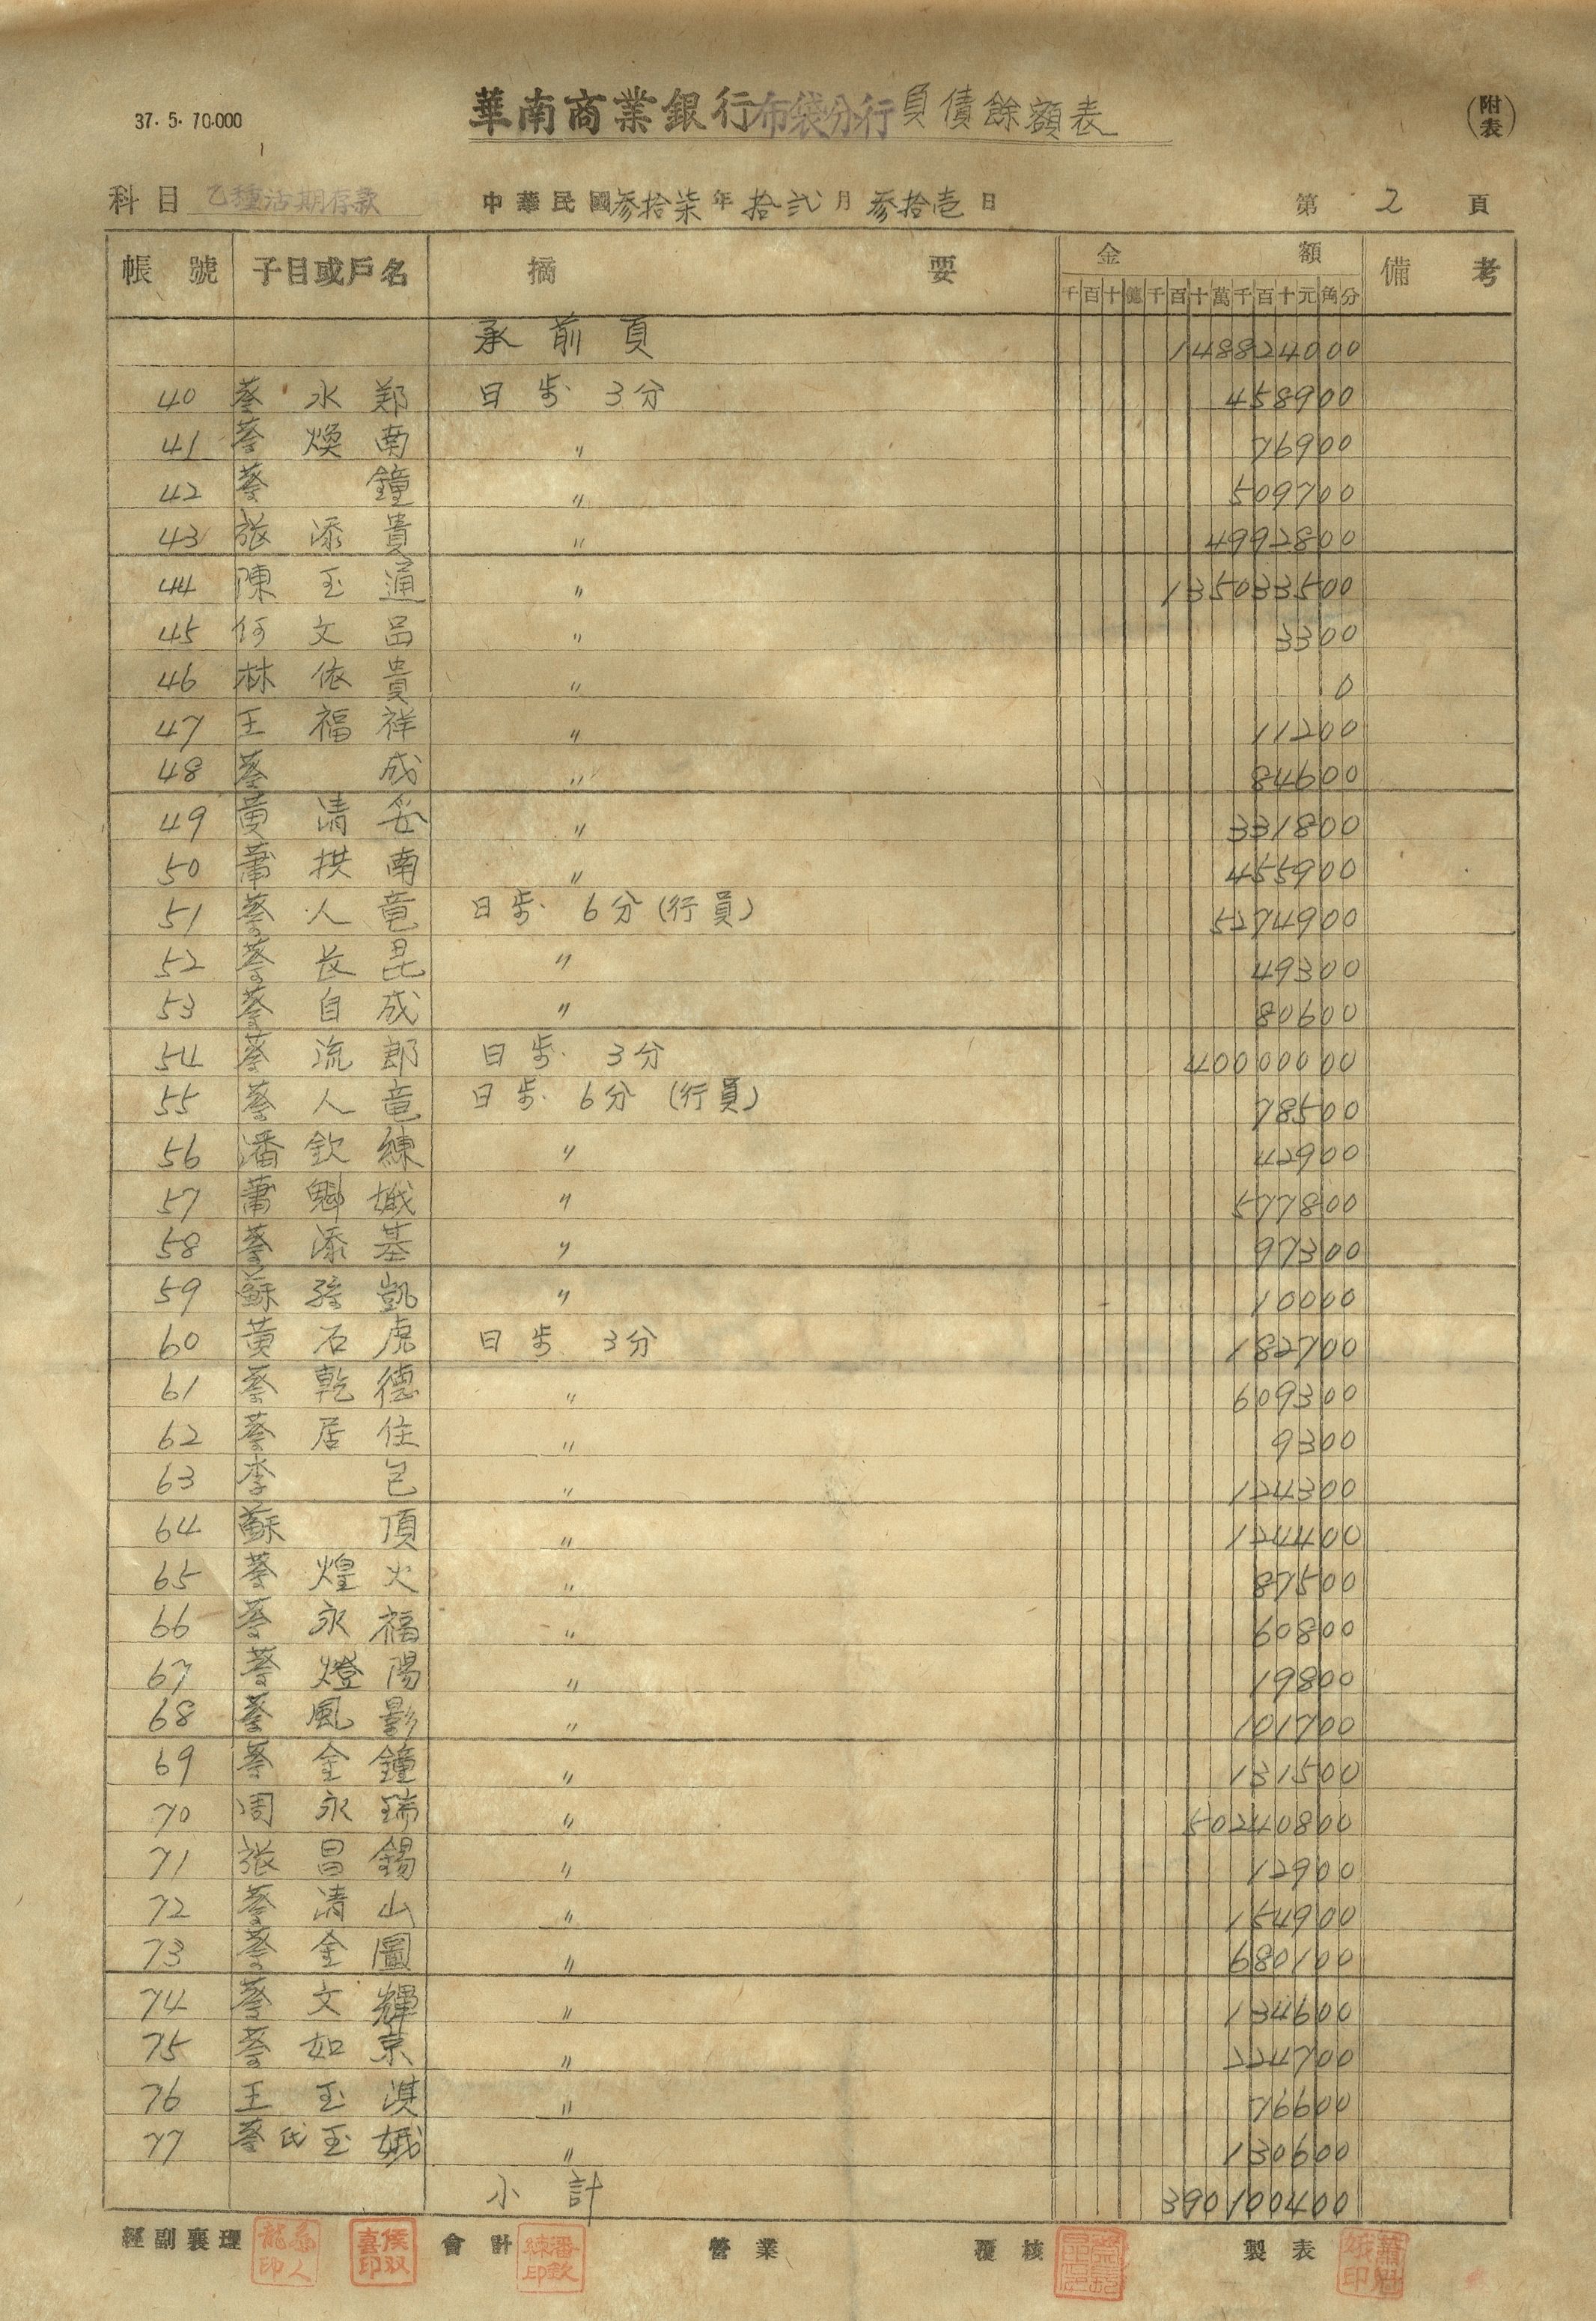 37. 5. 70.000
華南商業銀行布袋分行負債餘額表
(附表)
科目 乙種活期存款 中華民國叁拾柒年拾弍月叁拾壱日 第 2 頁
帳號 子目或戶名 摘要 金額 備考
千百十億千百十萬千百十元角分
承前頁 148824000
40 蔡水郑 日步 3分 458900
41 蔡煥南 〃 76900
42 蔡鐘 〃 509700
43 張添貴 〃 4992800
44 陳玉通 〃 135033500
45 何文呂 〃 3300
46 林依貴 〃 0
47 王福祥 〃 11200
48 蔡成 〃 84600
49 黃清岳 〃 331800
50 蕭拱南 〃 455900
51 蔡人竜 日步 6分(行員) 5274900
52 蔡長昆 〃 49300
53 蔡自成 〃 80600
54 蔡流郎 日步 3分 40000000
55 蔡人竜 日步 6分(行員) 78500
56 潘欽練 〃 42900
57 蕭魁娥 〃 577800
58 蔡添基 〃 97300
59 蘇 凱 〃 10000
60 黃石虎 日步 3分 182700
61 蔡乾德 〃 609300
62 蔡居住 〃 9300
63 李包 〃 124300
64 蘇頂 〃 124400
65 蔡煌火 〃 87500
66 蔡永福 〃 60800
67 蔡燈陽 〃 19800
68 蔡風影 〃 101700
69 蔡金鐘 〃 131500
70 周永瑞 〃 50240800
71 張昌錫 〃 12900
72 蔡清山 〃 154600
73 蔡金圖 〃 680100
74 蔡文輝 〃 134600
75 蔡如京 〃 224700
76 王玉淇 〃 79900
77 蔡氏玉娥 〃 130600
小計 390100400
經副襄理 蔡人龍印 侯双喜印 會計 潘欽練印 營業 覆核 製表 蕭魁娥印